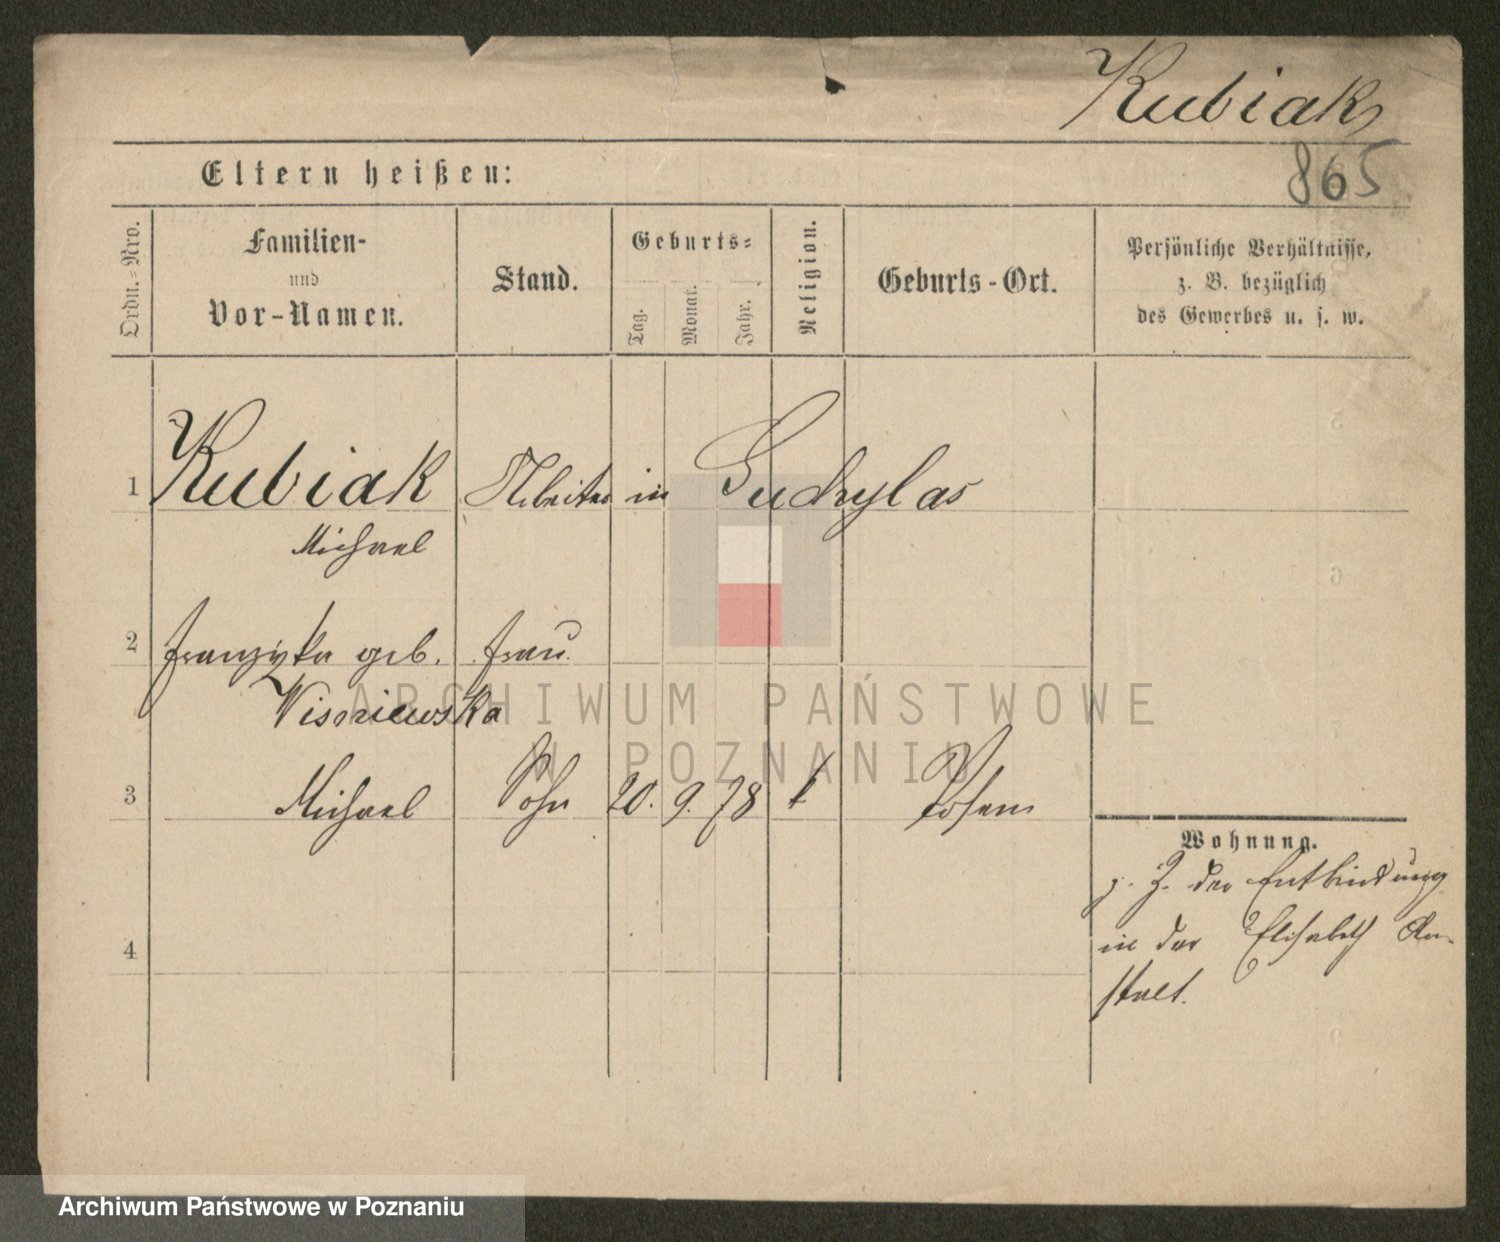 Kubiak
865
Eltern heißen:
Ordn.-Nro.
Familien-
und
Vor-Namen.
Stand.
Geburts-
Tag.
Monat.
Jahr.
Religion.
Geburts-Ort.
Persönliche Verhältnisse,
z. B. bezüglich
des Gewerbes u. s. w.
1 Kubiak Arbeiter in
Michael
2 Franziska geb. Frau
Wisniewska
3 Michael Sohn 20. 9. 78 k Posen
4
Wohnung.
z. Z. der Entbindung
in der Elisabeth An-
stalt.
ARCHIWUM PAŃSTWOWE
W POZNANIU
Archiwum Państwowe w Poznaniu